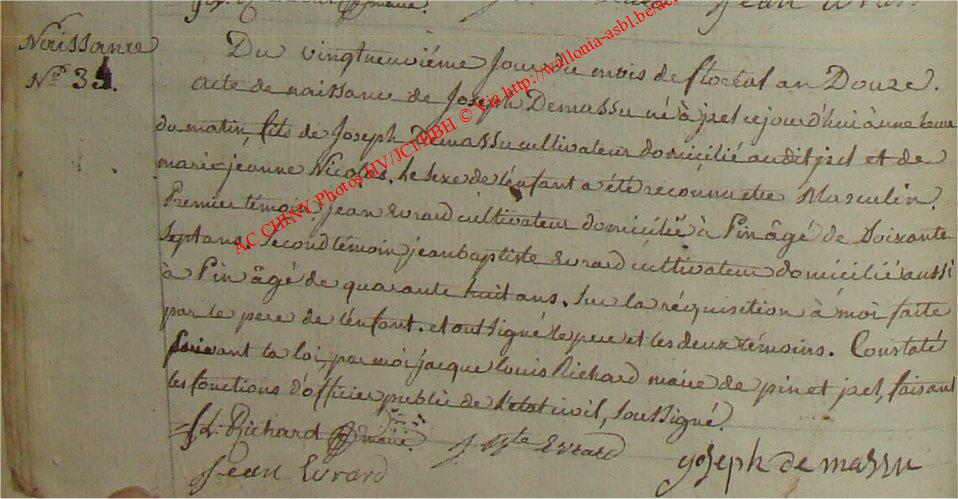 Jean Evrard
Naissance
N.° 35.
Du vingtneuviéme jour du mois de floréal an Douze.
acte de naissance de Joseph Demassu né à jzel cejourd'hui à une heure
du matin, fils de Joseph Demassu cultivateur domicilié audit jzel et de
mariejeanne Nicolas. le sexe de l'enfant a été reconnu etre Masculin.
Premier témoin, jean Evrard cultivateur domiciliéé à Pin âgé de Soixante
sept ans. Second témoin jeanbaptiste Evrard cultivateur domicilié aussi
à Pin âgé de quarante huit ans. Sur la réquisition à moi faite
par le pere de l'enfant. et ont signé le pere et les deux témoins. Constaté
suivant la loi, par moi jacque louis Richard maire de pin et jzel, faisant
les fonctions d'officier public de l'etat civil, soussigné.
J. L. Richard maire.
J Bte Evrard
joseph de massu
Jean Evrard
AC CHINY Photos HV/JCT/HBH © Via http://wallonia-asbl.be/ac